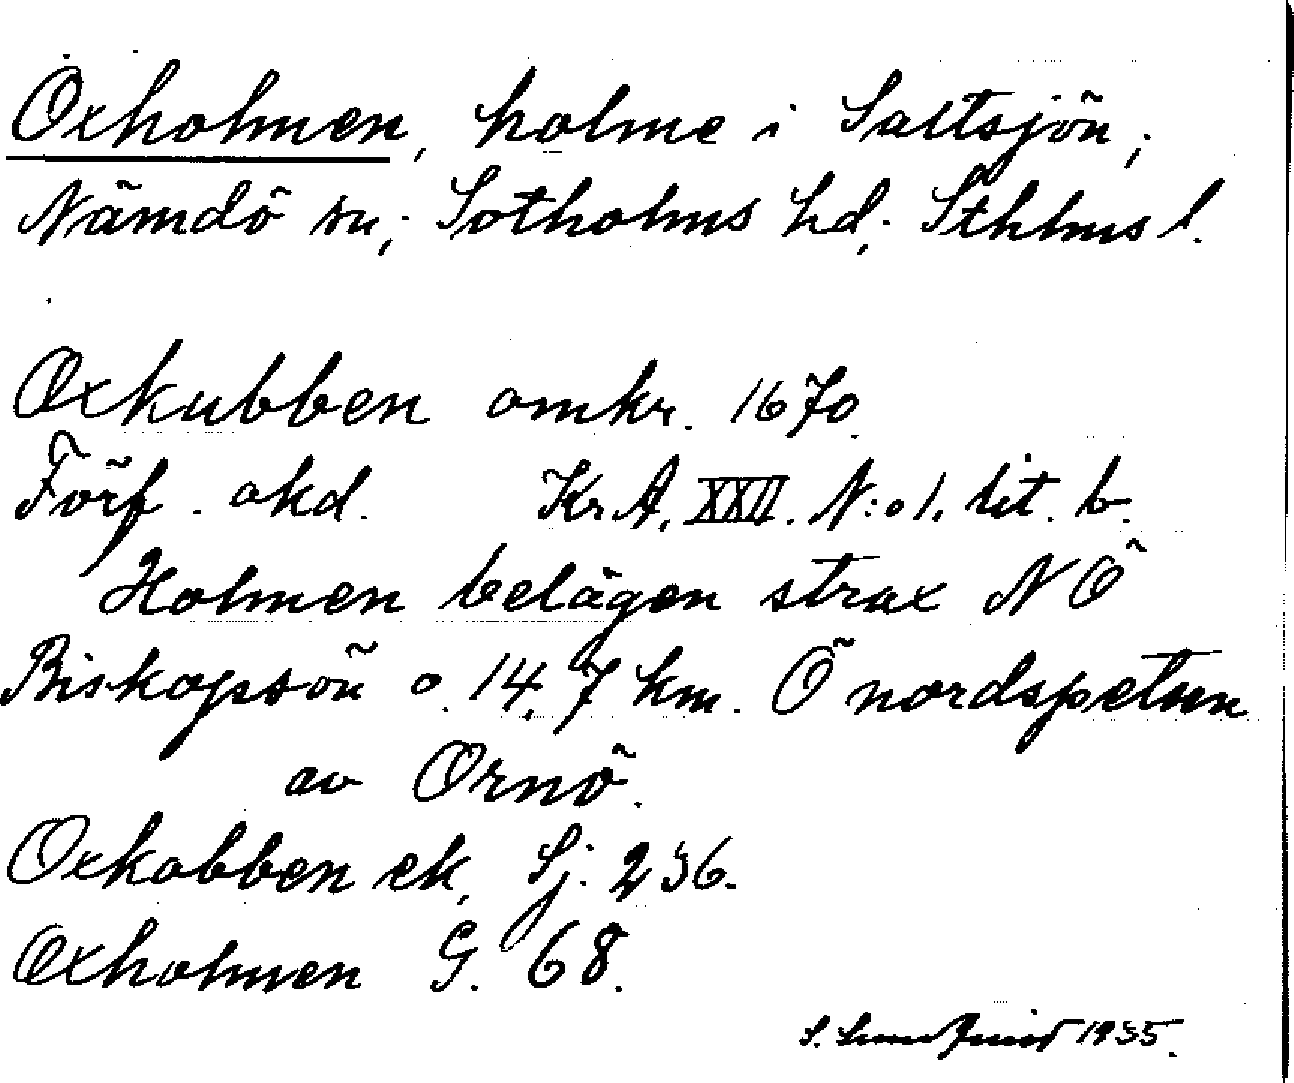 Oxholmen, holme i Saltsjön,
Nämdö sn, Sotholms hd, Sthlms l.
Oxkubben omkr. 1670.
Förf. okd. Kr.A. XXII. N:o 1. lit. b.
Holmen belägen strax NÖ
Biskopsön o. 14,7 km. Ö nordspetsen
av Ornö.
Oxkobben ek. Sj. 236.
Oxholmen G. 68.
S. 1935.